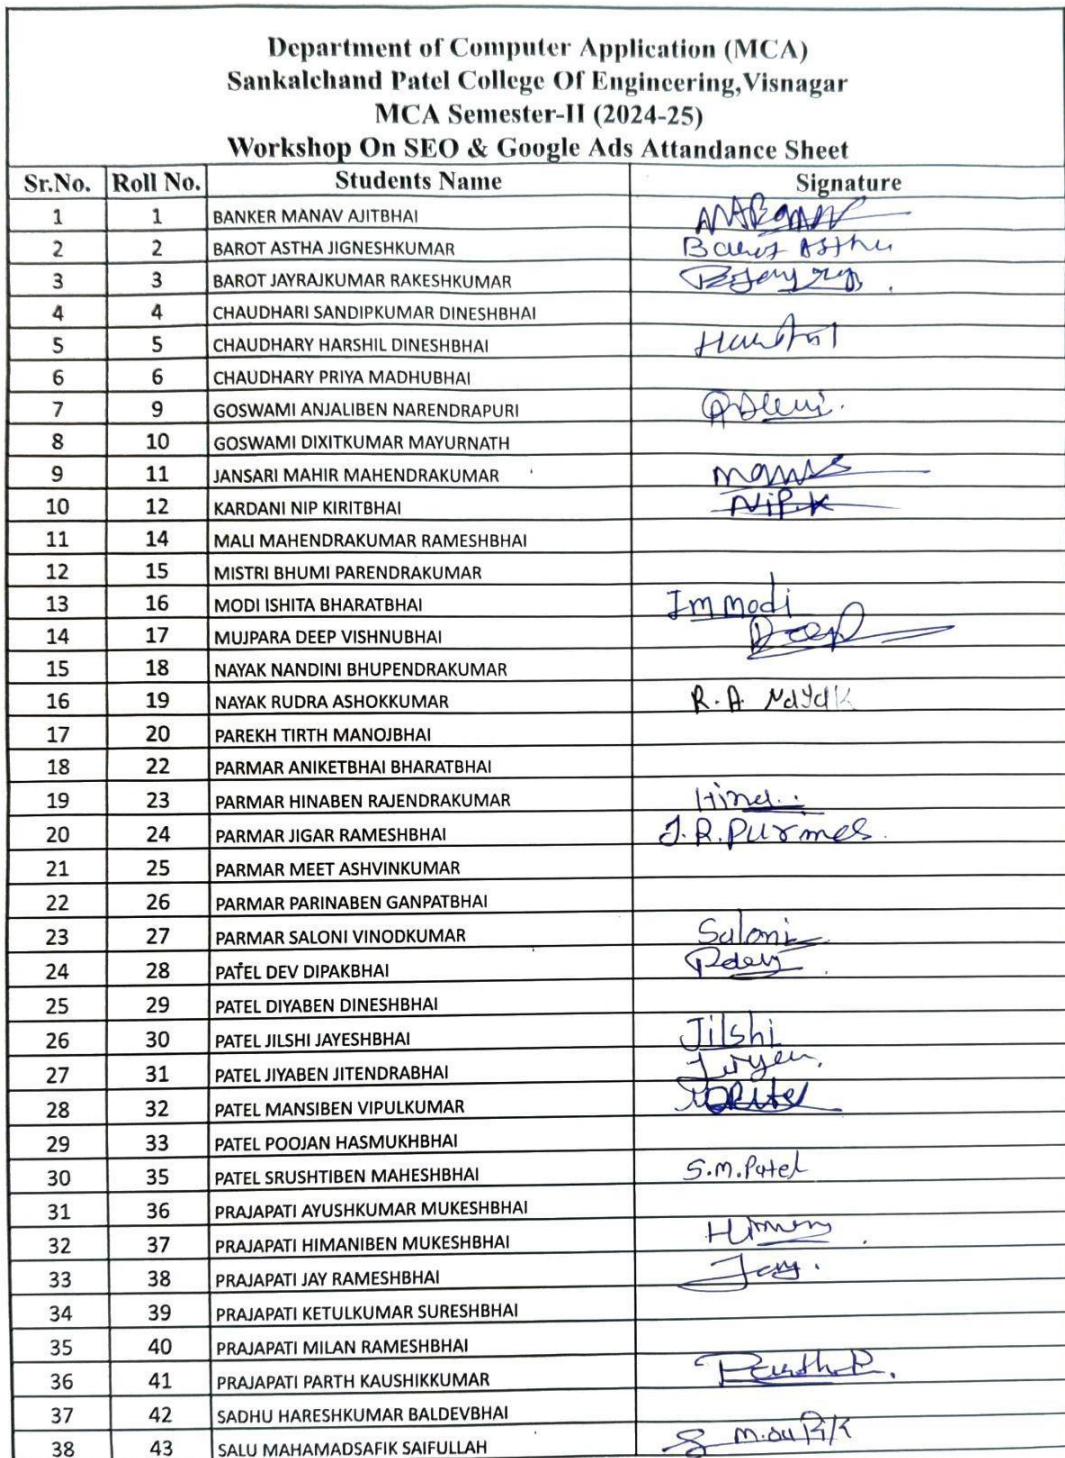 Department of Computer Application (MCA)
Sankalchand Patel College Of Engineering,Visnagar
MCA Semester-II (2024-25)
Workshop On SEO & Google Ads Attandance Sheet
Sr.No. Roll No. Students Name Signature
1 1 BANKER MANAV AJITBHAI
2 2 BAROT ASTHA JIGNESHKUMAR Barot Astha
3 3 BAROT JAYRAJKUMAR RAKESHKUMAR
4 4 CHAUDHARI SANDIPKUMAR DINESHBHAI
5 5 CHAUDHARY HARSHIL DINESHBHAI
6 6 CHAUDHARY PRIYA MADHUBHAI
7 9 GOSWAMI ANJALIBEN NARENDRAPURI
8 10 GOSWAMI DIXITKUMAR MAYURNATH
9 11 JANSARI MAHIR MAHENDRAKUMAR
10 12 KARDANI NIP KIRITBHAI NiP.K
11 14 MALI MAHENDRAKUMAR RAMESHBHAI
12 15 MISTRI BHUMI PARENDRAKUMAR
13 16 MODI ISHITA BHARATBHAI Im modi
14 17 MUJPARA DEEP VISHNUBHAI Deep
15 18 NAYAK NANDINI BHUPENDRAKUMAR
16 19 NAYAK RUDRA ASHOKKUMAR R.A Nayak
17 20 PAREKH TIRTH MANOJBHAI
18 22 PARMAR ANIKETBHAI BHARATBHAI
19 23 PARMAR HINABEN RAJENDRAKUMAR Hina
20 24 PARMAR JIGAR RAMESHBHAI J.R.Purmar
21 25 PARMAR MEET ASHVINKUMAR
22 26 PARMAR PARINABEN GANPATBHAI
23 27 PARMAR SALONI VINODKUMAR Saloni
24 28 PATEL DEV DIPAKBHAI Pdev
25 29 PATEL DIYABEN DINESHBHAI
26 30 PATEL JILSHI JAYESHBHAI Jilshi
27 31 PATEL JIYABEN JITENDRABHAI
28 32 PATEL MANSIBEN VIPULKUMAR
29 33 PATEL POOJAN HASMUKHBHAI
30 35 PATEL SRUSHTIBEN MAHESHBHAI S.M.Patel
31 36 PRAJAPATI AYUSHKUMAR MUKESHBHAI
32 37 PRAJAPATI HIMANIBEN MUKESHBHAI
33 38 PRAJAPATI JAY RAMESHBHAI Jay.
34 39 PRAJAPATI KETULKUMAR SURESHBHAI
35 40 PRAJAPATI MILAN RAMESHBHAI
36 41 PRAJAPATI PARTH KAUSHIKKUMAR Parth.P.
37 42 SADHU HARESHKUMAR BALDEVBHAI
38 43 SALU MAHAMADSAFIK SAIFULLAH